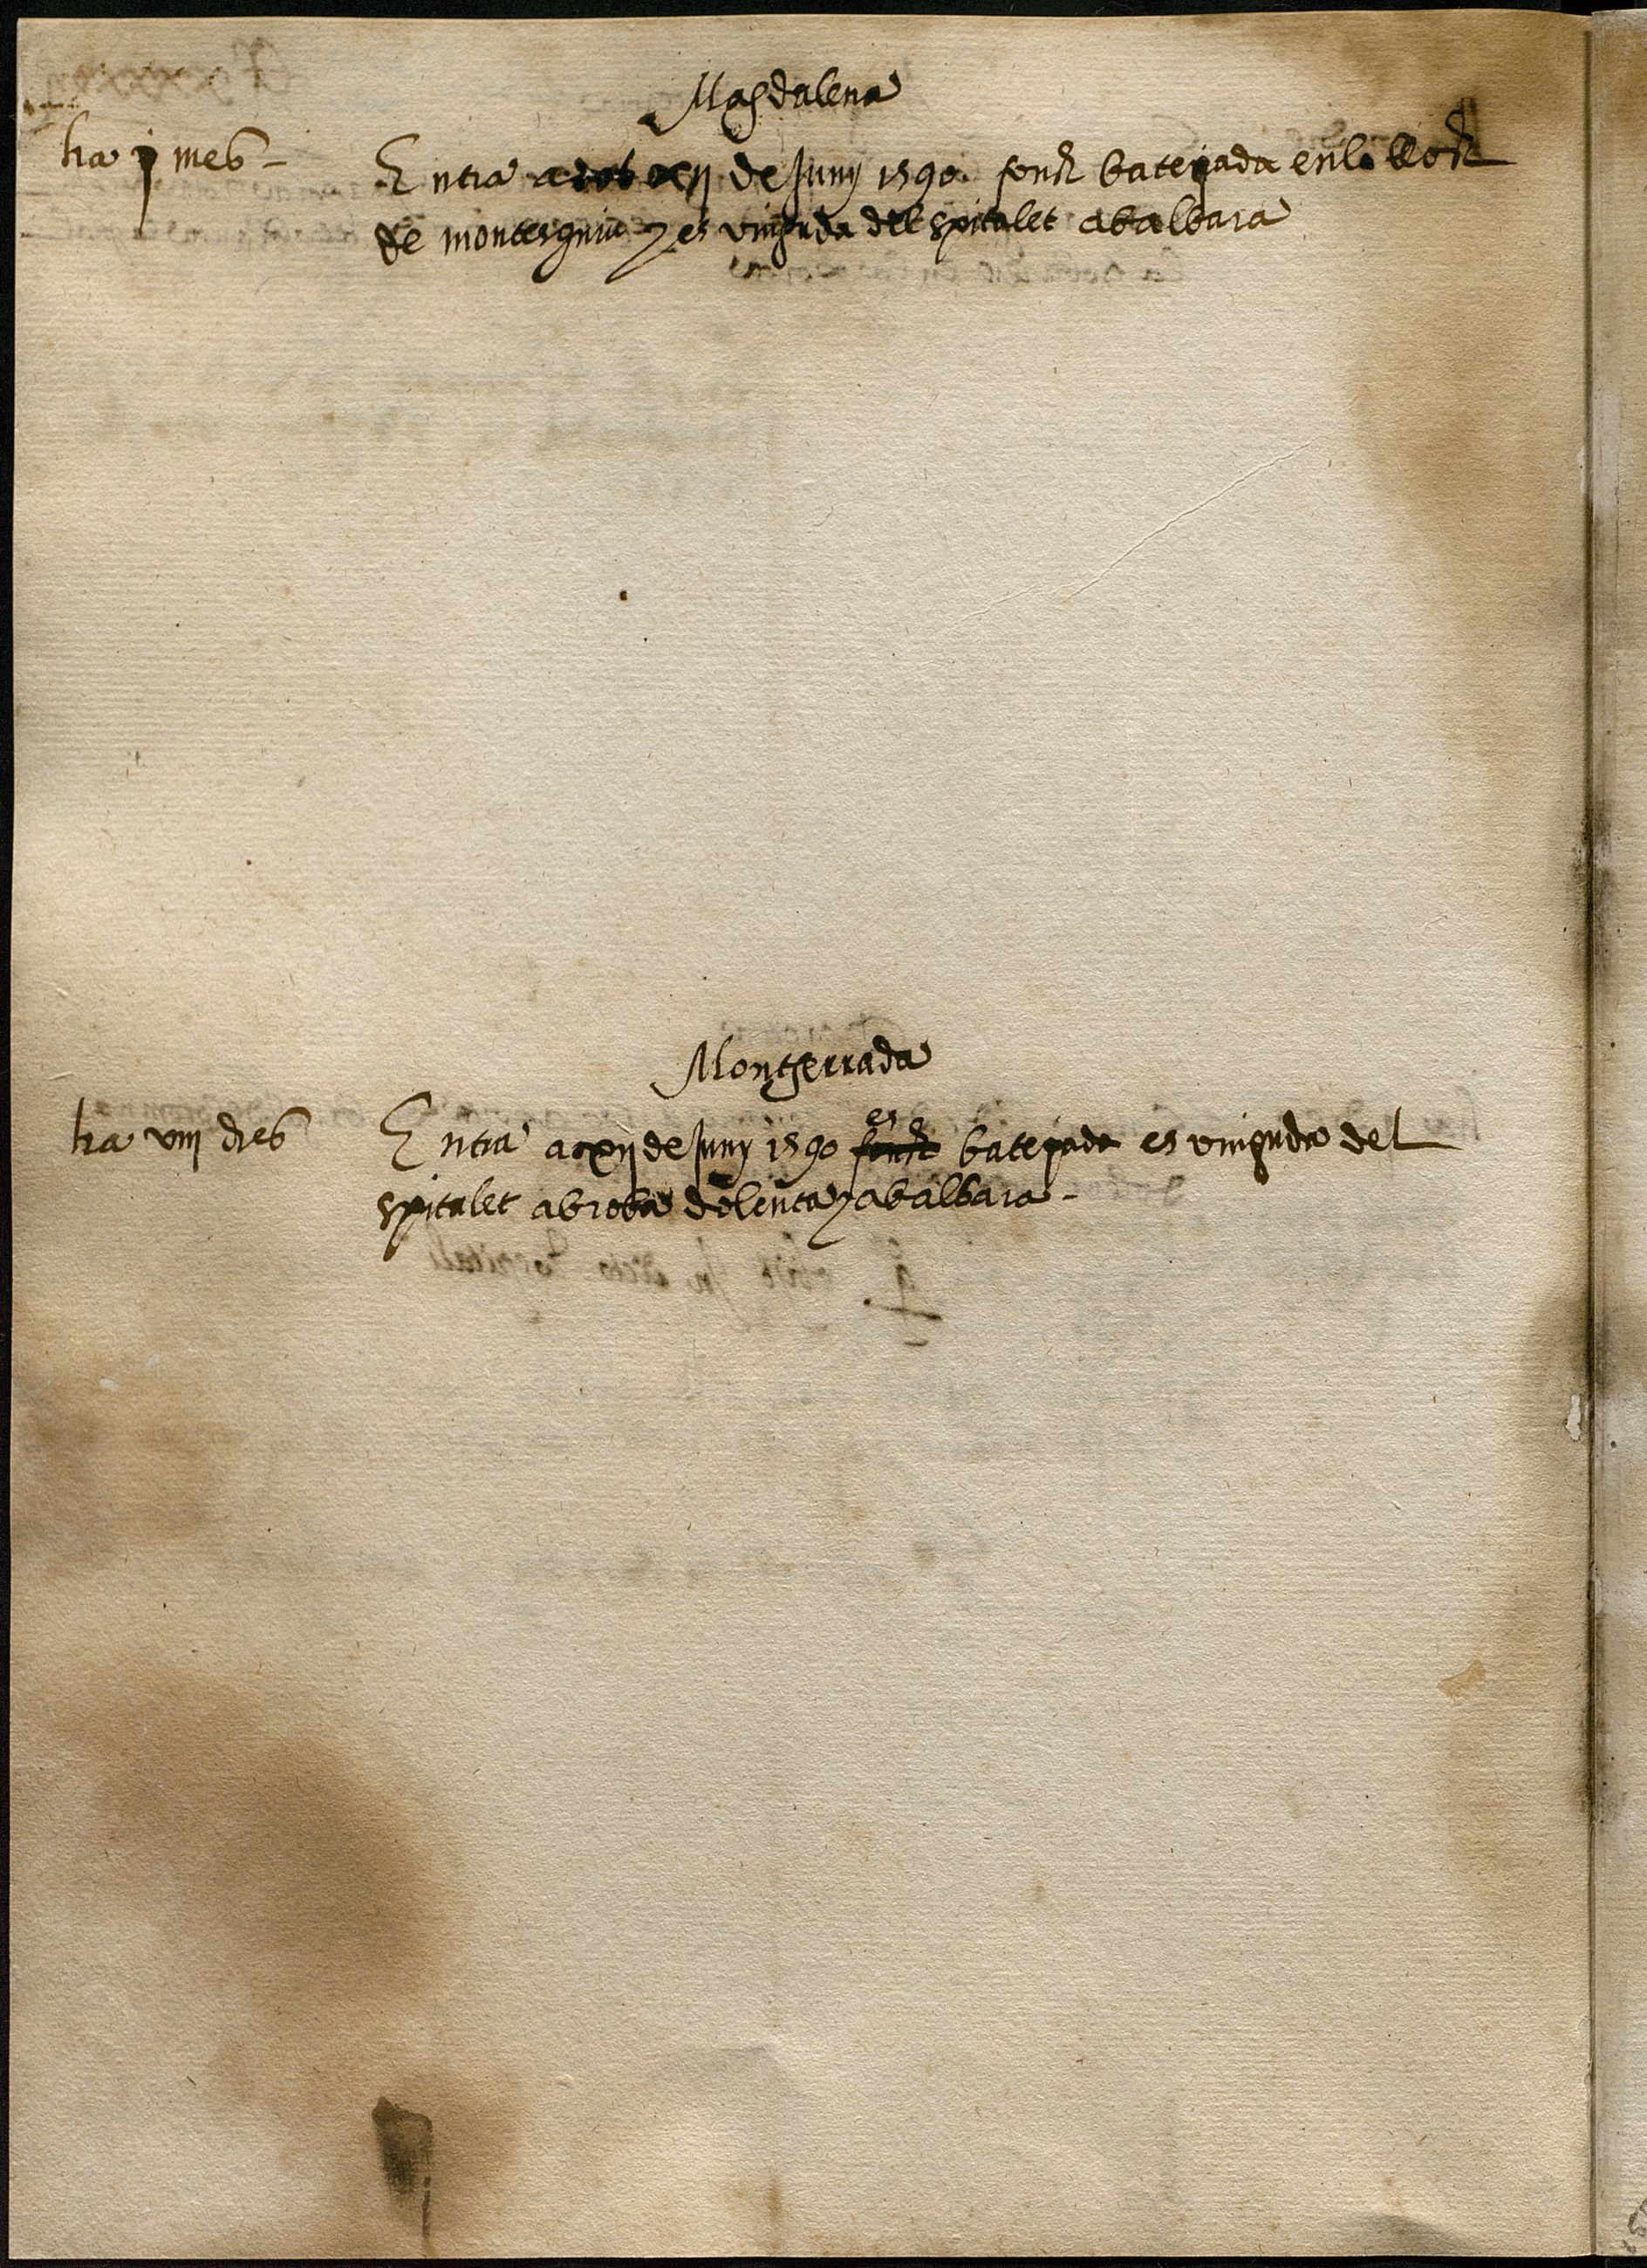 Magdalena
ha j mes -
Entra a xij de Juny 1590. fonch batejada en lo lloch
de montesquiu y es vinguda del spitalet ab albara
Montserrada
ha viij dies
Entra a xij de Juny 1590 es batejada es vinguda del
spitalet ab roba dolenta y ab albara -